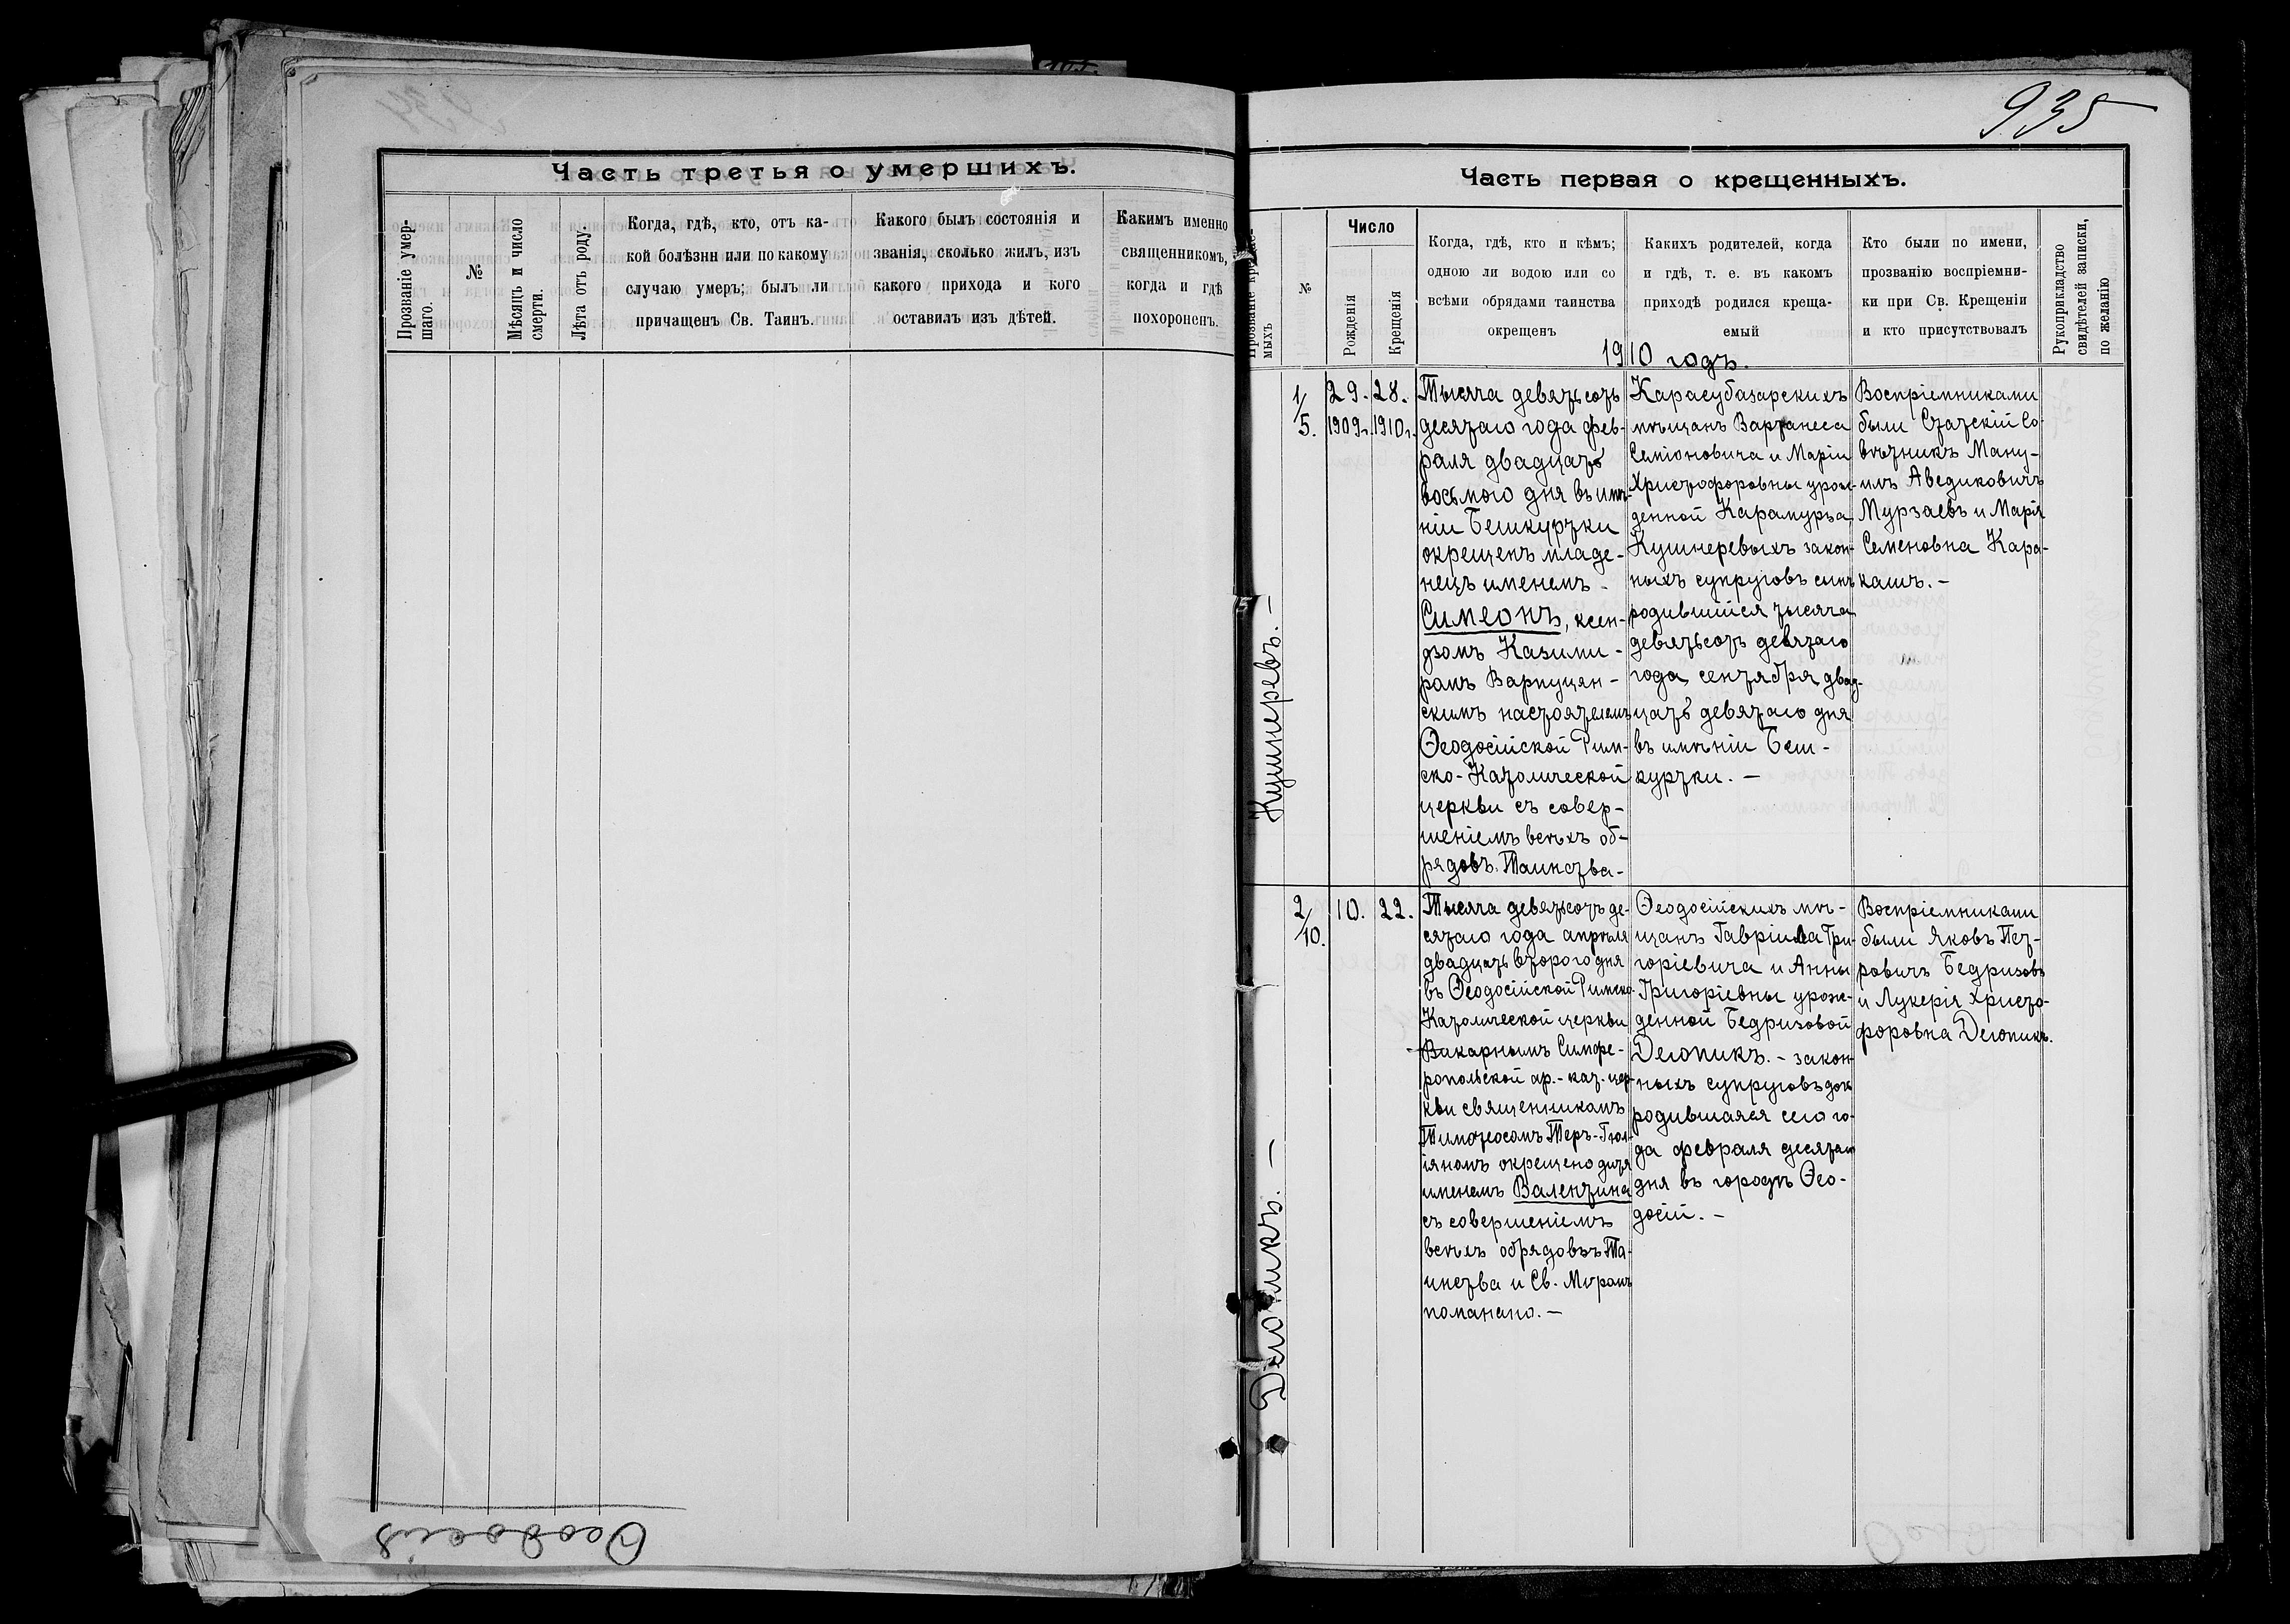 Часть третья о умершихъ.
Прозваніе умер-
шаго.
№
Мѣсяцъ и число
смерти.
Лѣта отъ роду.
Когда, гдѣ, кто, отъ ка-
кой болѣзни или по какому
случаю умеръ; былъ ли
причащенъ Св. Таинъ.
Какого былъ состоянія и
званія, сколько жилъ, изъ
какого прихода и кого
оставилъ изъ дѣтей.
Какимъ именно
священникомъ,
когда и гдѣ
похороненъ.
935
Часть первая о крещенныхъ.
мыхъ
№
Число
Рожденія
Крещенія
Когда, гдѣ, кто и кѣмъ;
одною ли водою или со
всѣми обрядами таинства
окрещенъ
Какихъ родителей, когда
и гдѣ, т. е. въ какомъ
приходѣ родился креща-
емый
Кто были по имени,
прозванію воспріемни-
ки при Св. Крещеніи
и кто присутствовалъ
Рукоприкладство
свидѣтелей записки,
по желанію
1910 годъ.
Кушнеревъ. —
1/5.
29.
1909г.
28.
1910г.
Тысяча девятьсотъ
десятаго года фев-
раля двадцать
восьмого дня въ имѣ-
ніи Бешкуртки
окрещенъ младе-
нецъ именемъ -
Симеонъ, ксен-
дзомъ Казими-
ромъ Варпуцян-
скимъ настоятелемъ
Ѳеодосійской Рим-
ско-Католической
церкви съ совер-
шеніемъ всѣхъ об-
рядовъ Таинства-
Карасубазарскихъ
мѣщанъ Вартанеса
Семіоновича и Маріи
Христофоровны урож-
денной Карамурза
Кушнеревыхъ закон-
ныхъ супруговъ сынъ
родившійся тысяча
девятьсотъ девятаго
года сентября двад-
цать девятаго дня
въ имѣніи Беш-
куртки. —
Воспріемниками
были Статскій Со-
вѣтникъ Ману-
илъ Аведиковичъ
Мурзаевъ и Марія
Семеновна Кара-
кашъ. —
Дегопикъ. —
2/10.
10.
22.
Тысяча девятьсотъ де-
сятаго года апрѣля
двадцать второго дня
въ Ѳеодосійской Римско-
Католической церкви
Викарнымъ Симфе-
ропольской ар.-кат. цер-
кви священникомъ
Тимотеосомъ Теръ-
окрещено дитя
именемъ Валентина
съ совершеніемъ
всѣхъ обрядовъ Та-
инства и Св. Мѵромъ
помазано. —
Ѳеодосійскихъ мѣ-
щанъ Гавріила Гри-
горіевича и Анны
Григоріевны урож-
денной Бедризовой
Дегопикъ. - закон-
ныхъ супруговъ дочь
родившаяся сего го-
да февраля десятаго
дня въ городѣ Ѳео-
досіи. —
Воспріемниками
были Яковъ Пет-
ровичъ Бедризовъ
и Лукерія Христо-
форовна Дегопикъ.